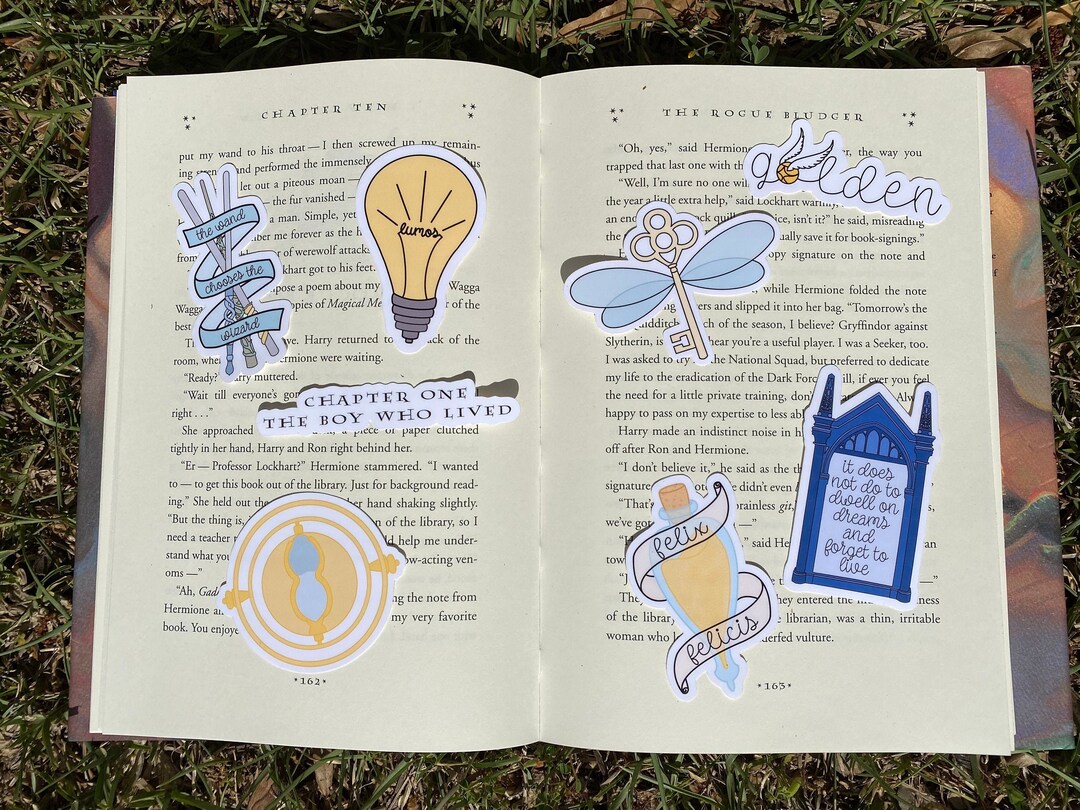 CHAPTER TEN
put my wand to his throat — I then screwed up my remain-
and performed the immensely
let out a piteous moan —
— the fur vanished —
a man. Simple, yet
me forever as the
of werewolf attacks
got to his feet.
a poem about my Wagga
Wagga copies of Magical of the
best
Harry returned to back of the
room, were waiting.
“Ready?” Harry muttered.
“Wait till everyone’s
right . . .”
She approached a piece of paper clutched
tightly in her hand, Harry and Ron right behind her.
“Er — Professor Lockhart?” Hermione stammered. “I wanted
to — to get this book out of the library. Just for background read-
ing.” She held out the her hand shaking slightly.
“But the thing is, of the library, so I
need a teacher help me under-
stand what you ven-
oms —”
“Ah, the note from
Hermione my very favorite
book. You
*162*
the wand
chooses the
wizard
lumos
CHAPTER ONE
THE BOY WHO LIVED
THE ROGUE BLUDGER
“Oh, yes,” said the way you
trapped that last one with
“Well, I’m sure no one
the year a little extra help,” said Lockhart warmly,
an isn’t it?” he said, misreading
save it for book-signings.”
signature on the note and
while Hermione folded the note
and slipped it into her bag. “Tomorrow’s the
of the season, I believe? Gryffindor against
Slytherin, is hear you’re a useful player. I was a Seeker, too.
I was asked to the National Squad, but preferred to dedicate
my life to the eradication of the Dark if ever you feel
the need for a little private training,
happy to pass on my expertise to less
Harry made an indistinct noise in
off after Ron and Hermione.
“I don’t believe it,” he said as the
signature didn’t even
“That’s git,
we’ve got —”
said
—”
They entered the
of the librarian, was a thin, irritable
woman who vulture.
*163*
golden
it does
not do to
dwell on
dreams
and
forget to
live
felix
felicis